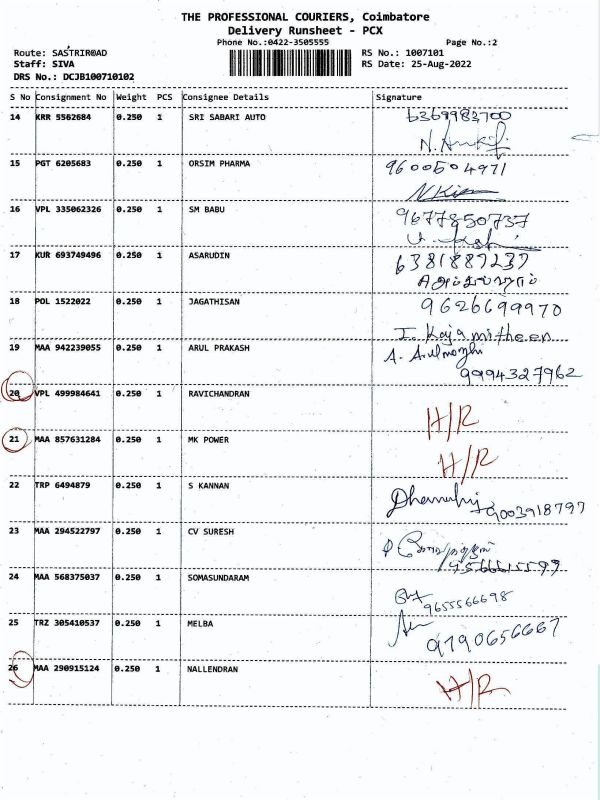 THE PROFESSIONAL COURIERS, Coimbatore
Delivery Runsheet - PCX
Phone No.:0422-3505555 Page No.:2
Route: SASTRIROAD RS No.: 1007101
Staff: SIVA RS Date: 25-Aug-2022
DRS No.: DCJB100710102
S No Consignment No Weight PCS Consignee Details Signature
14 KRR 5562684 0.250 1 SRI SABARI AUTO 6369983700
15 PGT 6205683 0.250 1 ORSIM PHARMA 9600504971
16 VPL 335062326 0.250 1 SM BABU 9677850737
17 KUR 693749496 0.250 1 ASARUDIN 6381887237
18 POL 1522022 0.250 1 JAGATHISAN 9626699970
I. Kaja mitheen
19 MAA 942239055 0.250 1 ARUL PRAKASH A. Arulmozhi
9994327962
20 VPL 499984641 0.250 1 RAVICHANDRAN H/R
21 MAA 857631284 0.250 1 MK POWER H/R
22 TRP 6494879 0.250 1 S KANNAN 9003918797
23 MAA 294522797 0.250 1 CV SURESH
24 MAA 568375037 0.250 1 SOMASUNDARAM 9655566698
25 TRZ 305410537 0.250 1 MELBA 9790656667
26 MAA 290915124 0.250 1 NALLENDRAN H/R